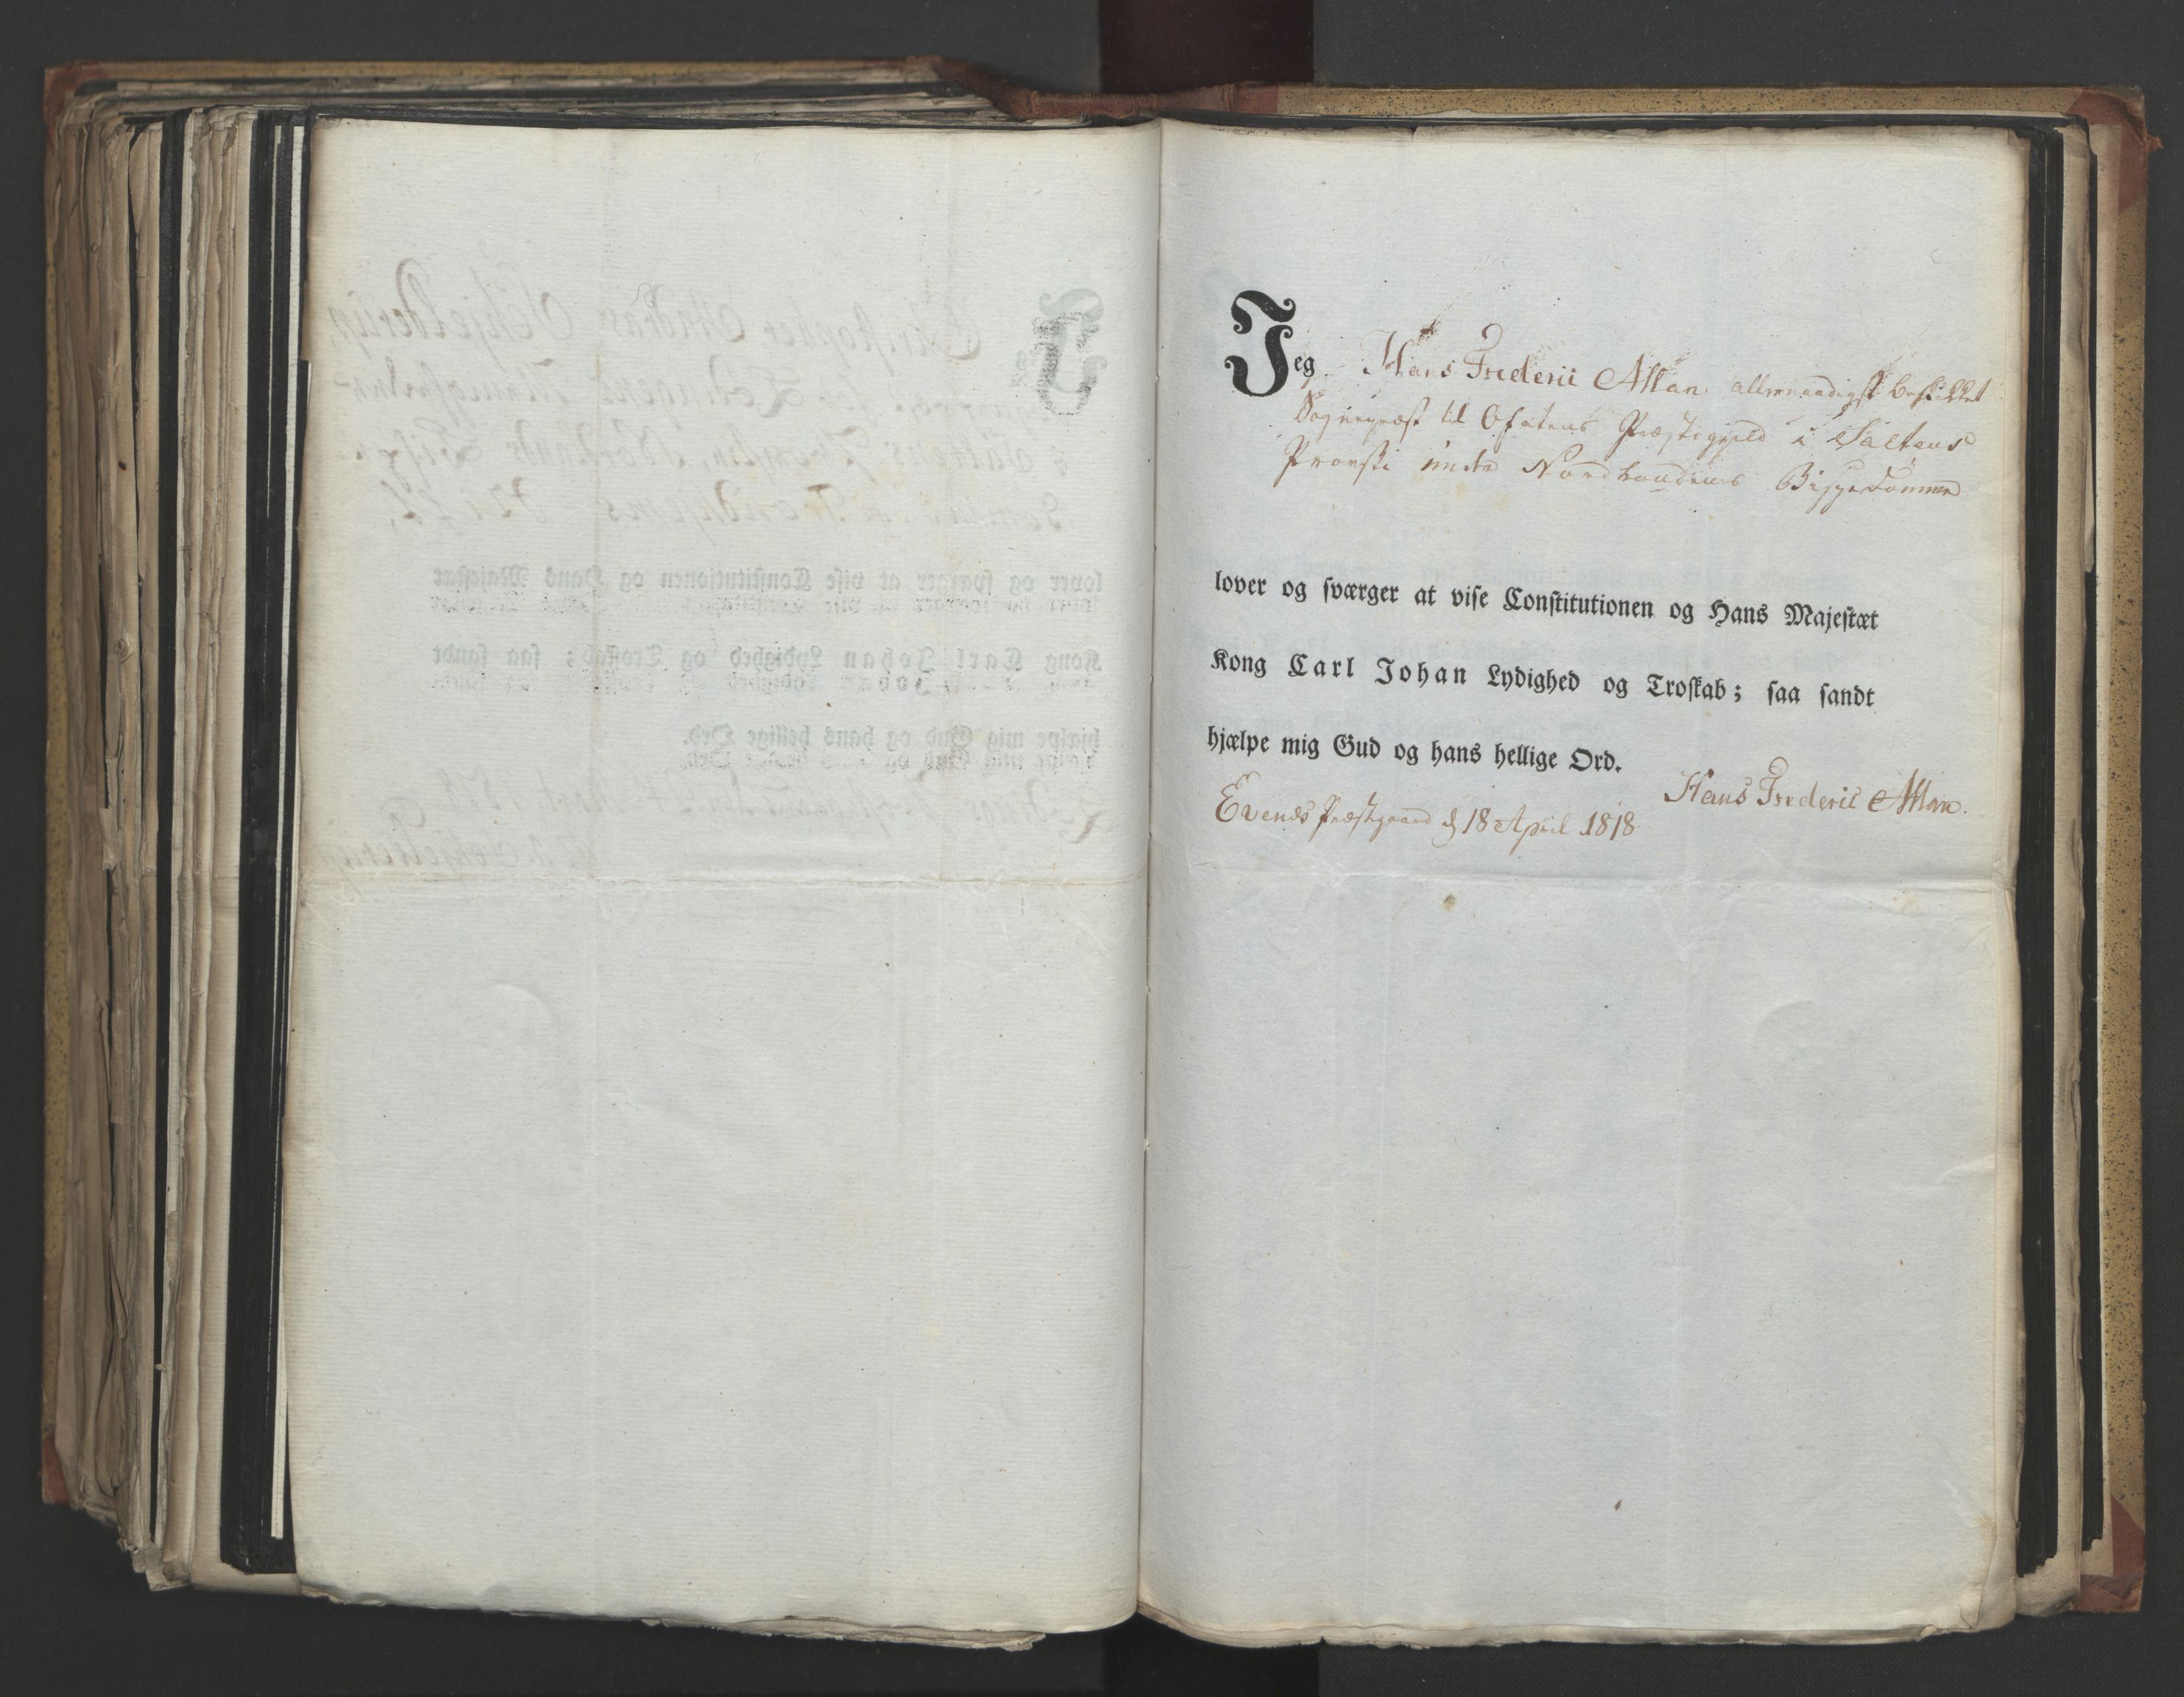 Jeg Hans Frederic Allan allernaadigst beskikket
Sognepræst til Ofotens Præstegjeld i Saltens
Provsti under Nordlandenes Bispedømme
lover og sværger at vise Constitutionen og Hans Majestæt
Kong Carl Johan Lydighed og Troskab; saa sandt
hjælpe mig Gud og hans hellige Ord.
Evenæs Præstegaard d 18 April 1818
Hans Frederic Allan.